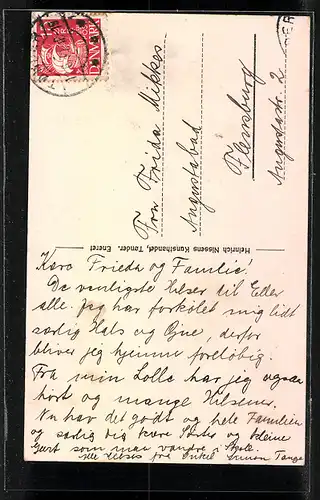 DANMARK
Fru Frida Mikkes
Augustabad
Flensburg
Augustastr. 2
Heinrich Nissens Kunsthandel, Tønder. Eneret
Kære Frieda og Familie!
De venligste Hilser til Eller
alle. Jeg har forkølet mig lidt
særlig Hals og Øjne, derfor
bliver jeg hjemme foreløbig.
Fra min Lolla har jeg ogsaa
hørt og mange Hilsener.
Nu hav det godt og hele Familien
og særlig dig kære Søster og kleine
Gert som man vandre i Skole.
alle Hilses fra Onkel Tange